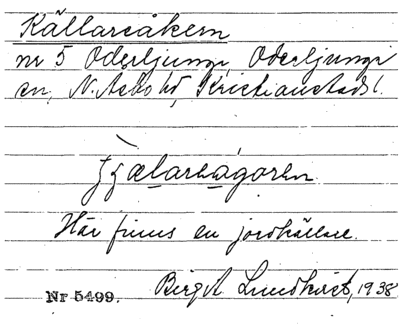 Källareåkern
nr 5 Oderljunga, Oderljunga
sn, N. Åsbo hd, Kristianstads l.
Här finns en jordkällare.
Birgit Lundkvist, 1938
Nr 5499.